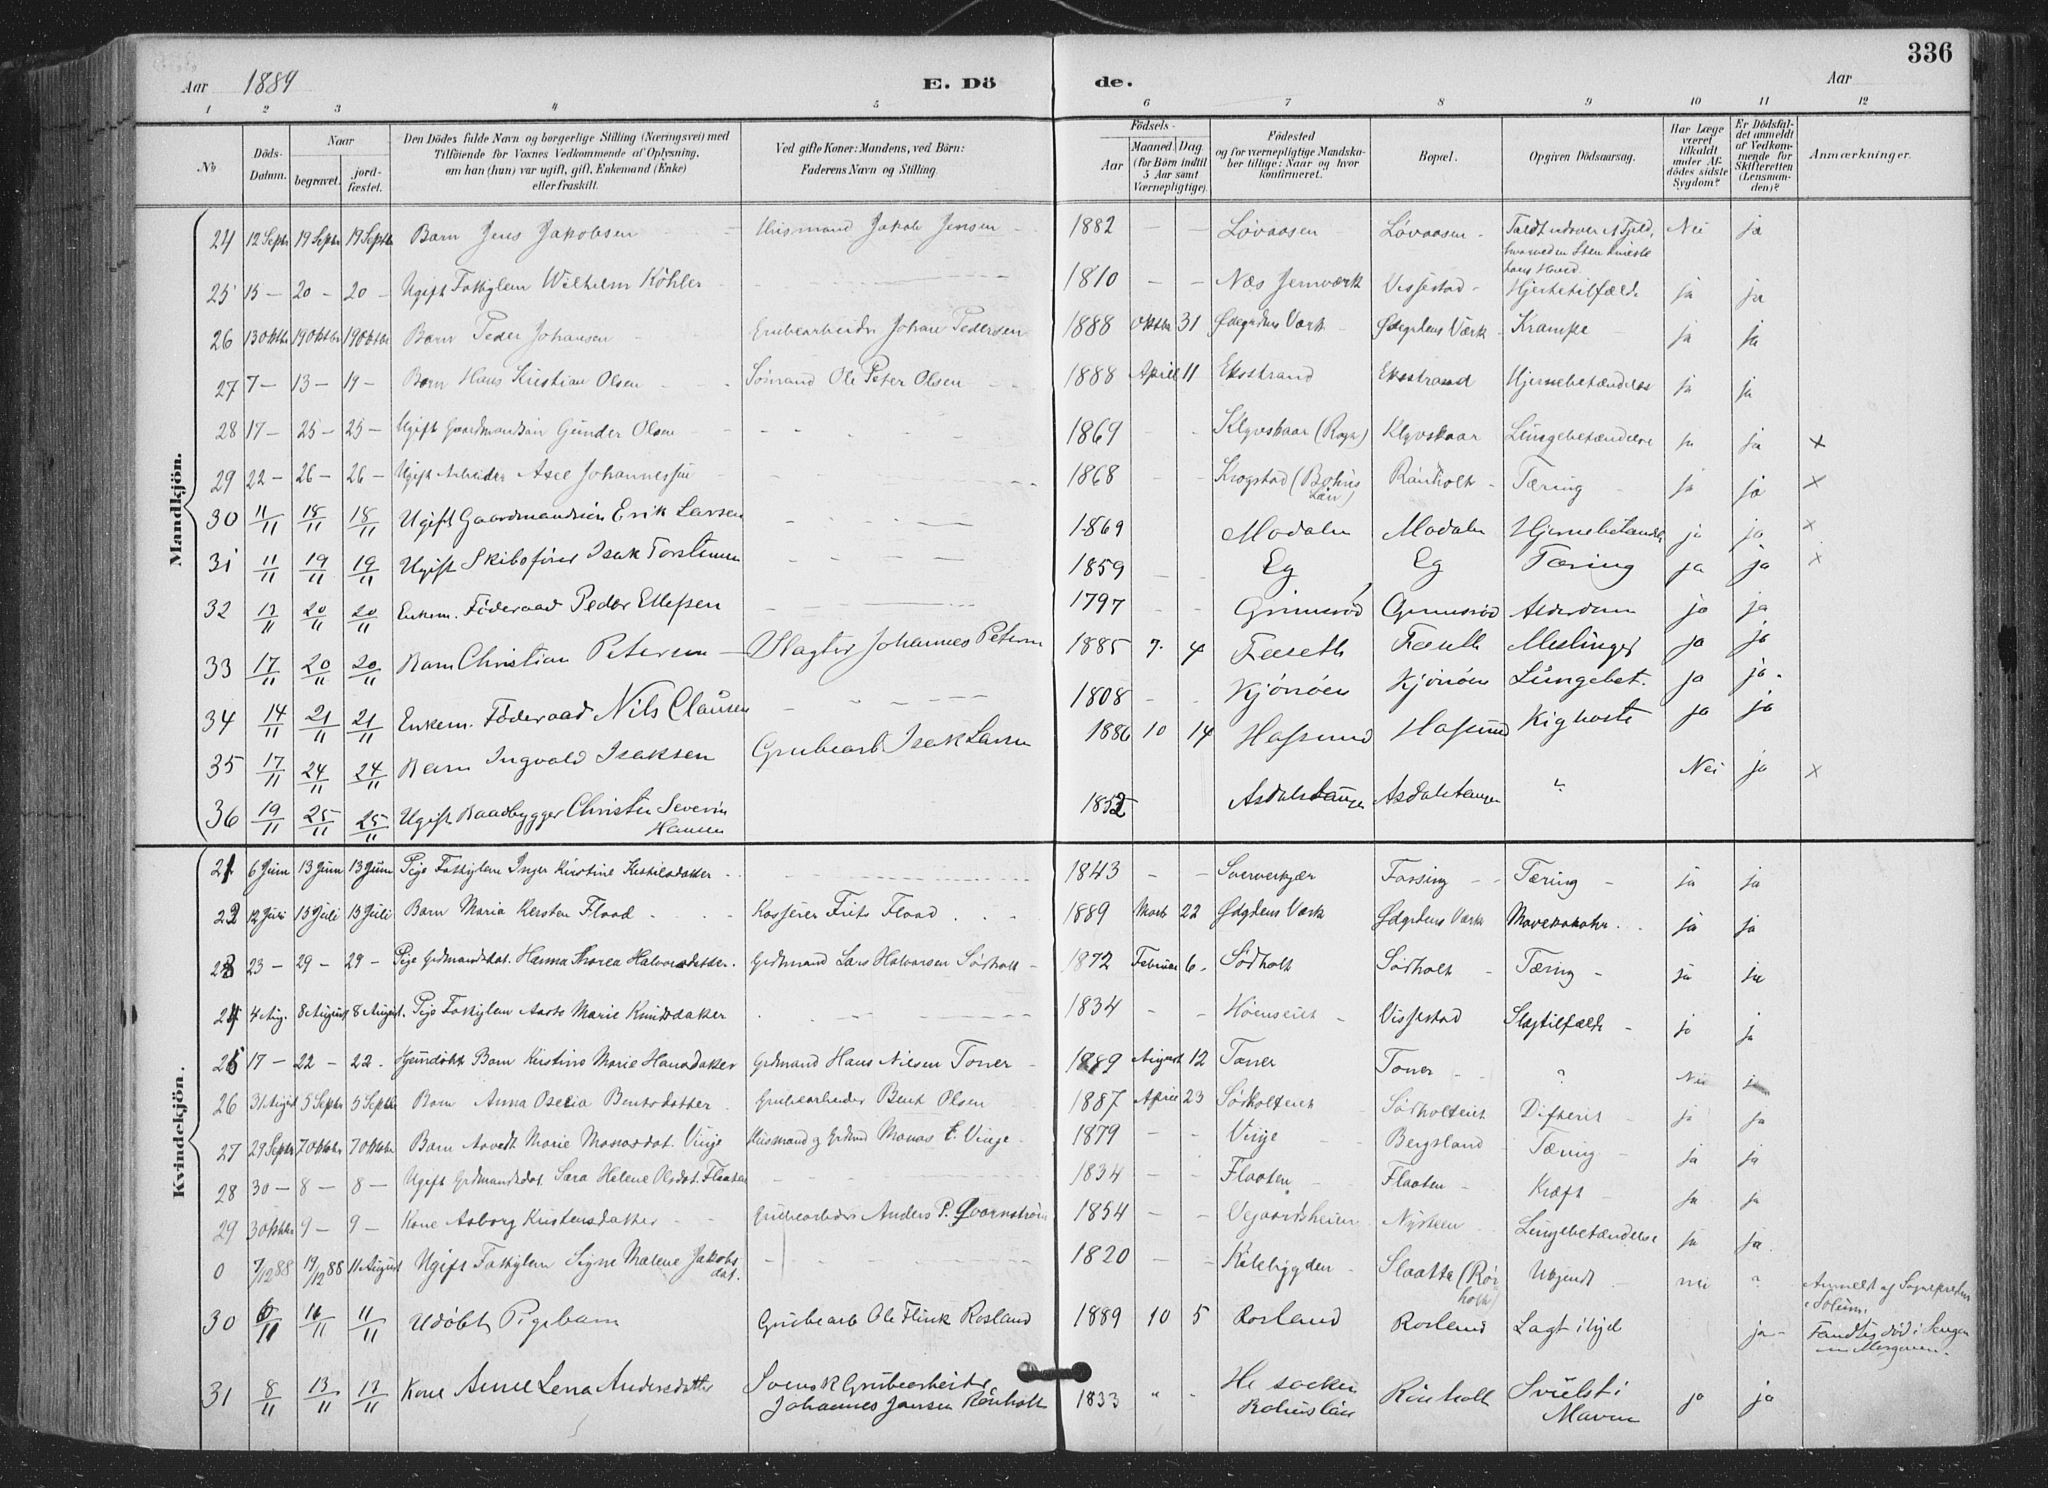 336
Aar 1889 E. Dö de. Aar
1 2 3 4 5 6 7 8 9 10 11 12
No Döds-Datum. Naar begravet. jord-fæstet. Den Dödes fulde Navn og borgerlige Stilling (Næringsvei) med Tilföiende for Voxnes Vedkommende af Oplysning, om han (hun) var ugift, gift, Enkemand (Enke) eller fraskilt. Ved gifte Koner: Mandens, ved Börn: Faderens Navn og Stilling. Födsels- Aar Maaned. Dag. (for Börn indtil 5 Aar samt Værnepligtige). Födested og for værnepligtige Mandskaber tillige: Naar og hvor konfirmeret. Bopæl. Opgiven Dödsaarsag. Har Læge været tilkaldt under Afdödes sidste Sygdom? Er Dödsfaldet anmeldt af Vedkommende for Skifteretten (Lensmanden)? Anmærkninger.
Mandkjön.
24 12 Septr 19 Septr 19 Septr Barn Jens Jakobsen Husmand Jakob Jensen 1882 — — Løvaasen Løvaasen Faldt udover et Fjeld, hvorved en Sten knuste hans Hoved. Nei ja
25 15 — 20 — 20 — Ugift Fattiglem Wilhelm Köhler 1810 — — Næs Jernværk Vissestad Hjertetilfælde ja ja
26 13 Oktbr 19 Oktbr 19 Oktbr Barn Peder Johansen Grubearbeider Johan Pedersen 1888 Oktbr 31 Ødegrdens Værk Ødegrdens Værk Krampe ja ja
27 7 — 13 — 19 — Barn Hans Kristian Olsen Sömand Ole Peter Olsen 1888 April 11 Eksstrand Eksstrand Hjernebetændelse ja ja
28 17 — 25 — 25 — Ugift Gaardmandssön Gunder Olsen 1869 Klyvskaar Klyvskaar Lungebetændelse ja ja ×
29 22 — 26 — 26 — Ugift Arbeider Axel Johannessen 1868 — — Krogstad (Bohus Län) Rönholt Tæring ja ja ×
30 11/11 18/11 18/11 Ugift Gaardmandssön Erik Larsen 1869 Modalen Modalen Hjernebetændelse ja ja ×
31 11/11 19/11 19/11 Ugift Skibsförer Isak Torstensen 1859 Eg Eg Tæring ja ja ×
32 12/11 20/11 20/11 Enkem. Föderaad Peder Ellefsen 1797 Grimsröd Grimsröd Alderdom ja ja
33 17/11 20/11 20/11 Barn Christian Petersen Slagter Johannes Petersen 1885 7. 4 Fæseth Fæseth Meslinger ja ja
34 14/11 21/11 21/11 Enkem. Föderaad Nils Clausen 1808 Kjönöen Kjönöen Lungebet. ja ja.
35 17/11 24/11 24/11 Barn Ingvald Isaksen Grubearb Isak Larsen 1886 10 14 Hafsund Hafsund Kighoste ja ja
36 19/11 25/11 25/11 Ugift Baadbygger Christen Severin Hansen 1852 Asdalstangen Asdalstangen " Nei ja ×
Kvindekjön.
21 6 Juni 13 Juni 13 Juni Pige Fattiglem Inger Kirstine Kittilsdatter 1843 — — Fossing Tæring ja ja
22 12 Juli 15 Juli 15 Juli Barn Maria Kersten Flood Kasserer Frits Flood 1889 Marts 22 Ødgrdens Værk Ødgrdens Værk Mavekatarr. ja ja
23 23 — 29 — 29 — Pige Grdmandsdat. Hanna Thorea Halvorsdatter. Grdmand Lars Halvorsen Sørholt 1872 Februar 6 Sødholt Sødholt Tæring ja ja
24 4 Aug. 8 August 8 August. Pige Fattiglem Aaste Marie Knudsdatter 1834 — — Høenseiet Vissestad Slagtilfælde ja ja
25 17 — 22 — 22 — Hjemdøbt Barn Kirstine Marie Hansdatter Grdmand Hans Nilsen Toner 1889 August 12 Toner Toner ? Nei ja
26 31 August 5 Septr 5 Septbr Barn Anna Oselia Bentsdatter Grubearbeider Bent Olsen 1887 April 23 Sødholteiet Sødholteiet Difterit ja ja
27 29 Septr 7 Oktbr 7 Oktbr Barn Marie Monasdat. Vinje Husmand og Grdmd Monas E. Vinje 1879 — — Vinje Bergsland Tæring ja ja
28 30 — 8 — 8 — Ugift Grdmandsdat. Sara Helene Olsdat. Flaaten 1834 — — Flaaten Flaaten Kræft ja ja
29 3 Oktbr 9 — 9 — Kone Asborg Kristensdatter Grubearbeider Anders P. Qvarnström 1854 Vegaardsheien Nysteen Lungebetændelse ja ja.
0 7/12 88 14/12 88 11 August Ugift Fattiglem Signe Malene Jakobsdat. 1820 — — Kilebygden Slaatta (Rørholt) Ukjendt nei ? Anmeldt af Sognepresten i Solum.
30 6/11 16/11 11/11 Udöbt Pigebarn Grubearb Ole Flink Rosland 1889 10 5 Rosland Rosland Lagt ihjel ja — Fandtes död i Sengen om Morgenen.
31 8/11 13/11 17/11 Kone Anne Lena Andersdatter Svensk Grubearbeider Johannes Jansen Rönholt 1833 " " Bohuslän Rönholt Svulst i Maven ja ja